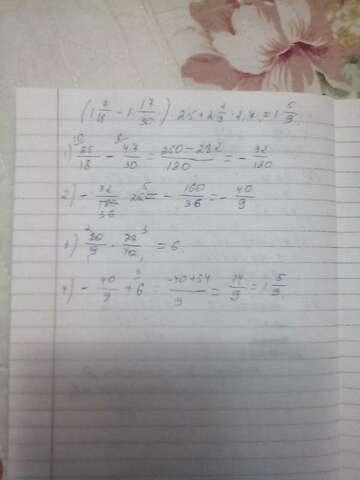 (1 7/18 − 1 17/30) · 25 + 2 2/9 · 2,7 = 1 5/9
1) 25/18 − 47/30 = 250 − 282/180 = − 32/180
2) − 32/180 · 25 = − 160/36 = − 40/9
3) 20/9 · 27/10 = 6
4) − 40/9 + 6 = −40+54/9 = 14/9 = 1 5/9